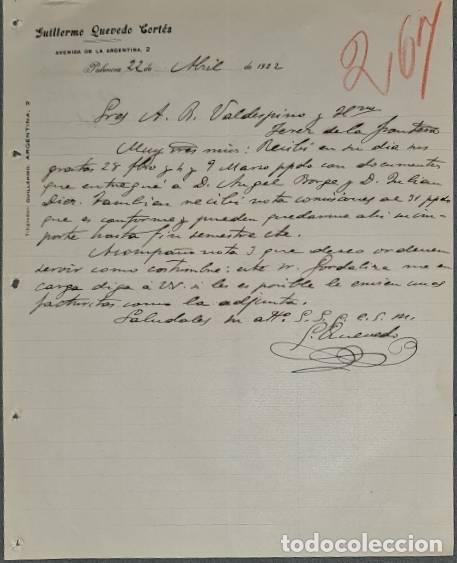 Guillermo Quevedo Cortés
AVENIDA DE LA ARGENTINA, 2
267
Palencia 22 de Abril de 1922
Sres A. R. Valdespino y Hno
Jerez de la frontera
Muy Sres mios: Recibi en su dia sus
gratas 28 fbro y 4 y 9 Marzo ppdo con documentos
que entregué a D. Angel Borge y D. Julian
Diez. Tambien recibi nota comisiones al 31 ppdo
que es conforme y pueden quedarme ahi su im-
porte hasta fin semestre cte.
Acompaño nota 3 que deseo ordenen
servir como costumbre: este Sr. Gordaliza me en
carga diga a VV. si les es posible le envien unas
facturitas como la adjunta.
Saludales su atto. S. S. q. e. s. m.
G. Quevedo
Teléfono: GUILLERMO ARGENTINA, 2
todocoleccion.net